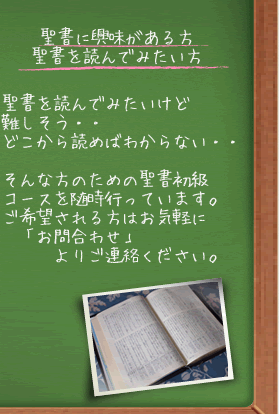 聖書に興味がある方
聖書を読んでみたい方
聖書を読んでみたいけど
難しそう・・
どこから読めばわからない・・
そんな方のための聖書初級
コースを随時行っています。
ご希望される方はお気軽に
「お問合わせ」
よりご連絡ください。